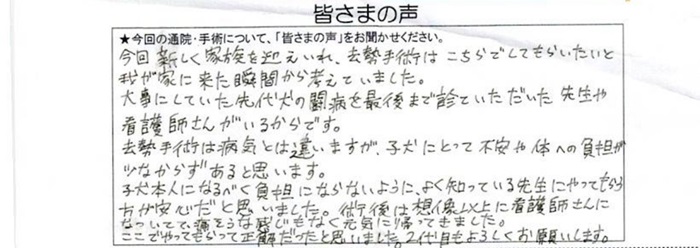 皆さまの声
★今回の通院・手術について、「皆さまの声」をお聞かせください。
今回 新しく家族を迎えいれ、去勢手術はこちらでしてもらいたいと
我が家に来た瞬間から考えていました。
大事にしていた先代犬の闘病を最後まで診ていただいた先生や
看護師さんがいるからです。
去勢手術は病気とは違いますが、子犬にとって不安や体への負担が
少なからずあると思います。
子犬本人になるべく負担にならないように、よく知っている先生にやってもらう
方が安心だと思いました。術後は想像以上に看護師さんに
なついてて、痛そうな感じもなく元気に帰ってきました。
ここでやってもらって正解だったと思いました。2代目もよろしくお願いします。